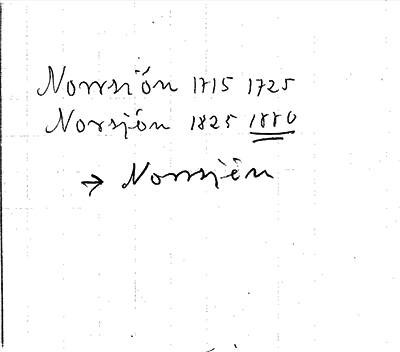 Norrsión 1715 1725
Norsjön 1825 1880
→ Norrsjön